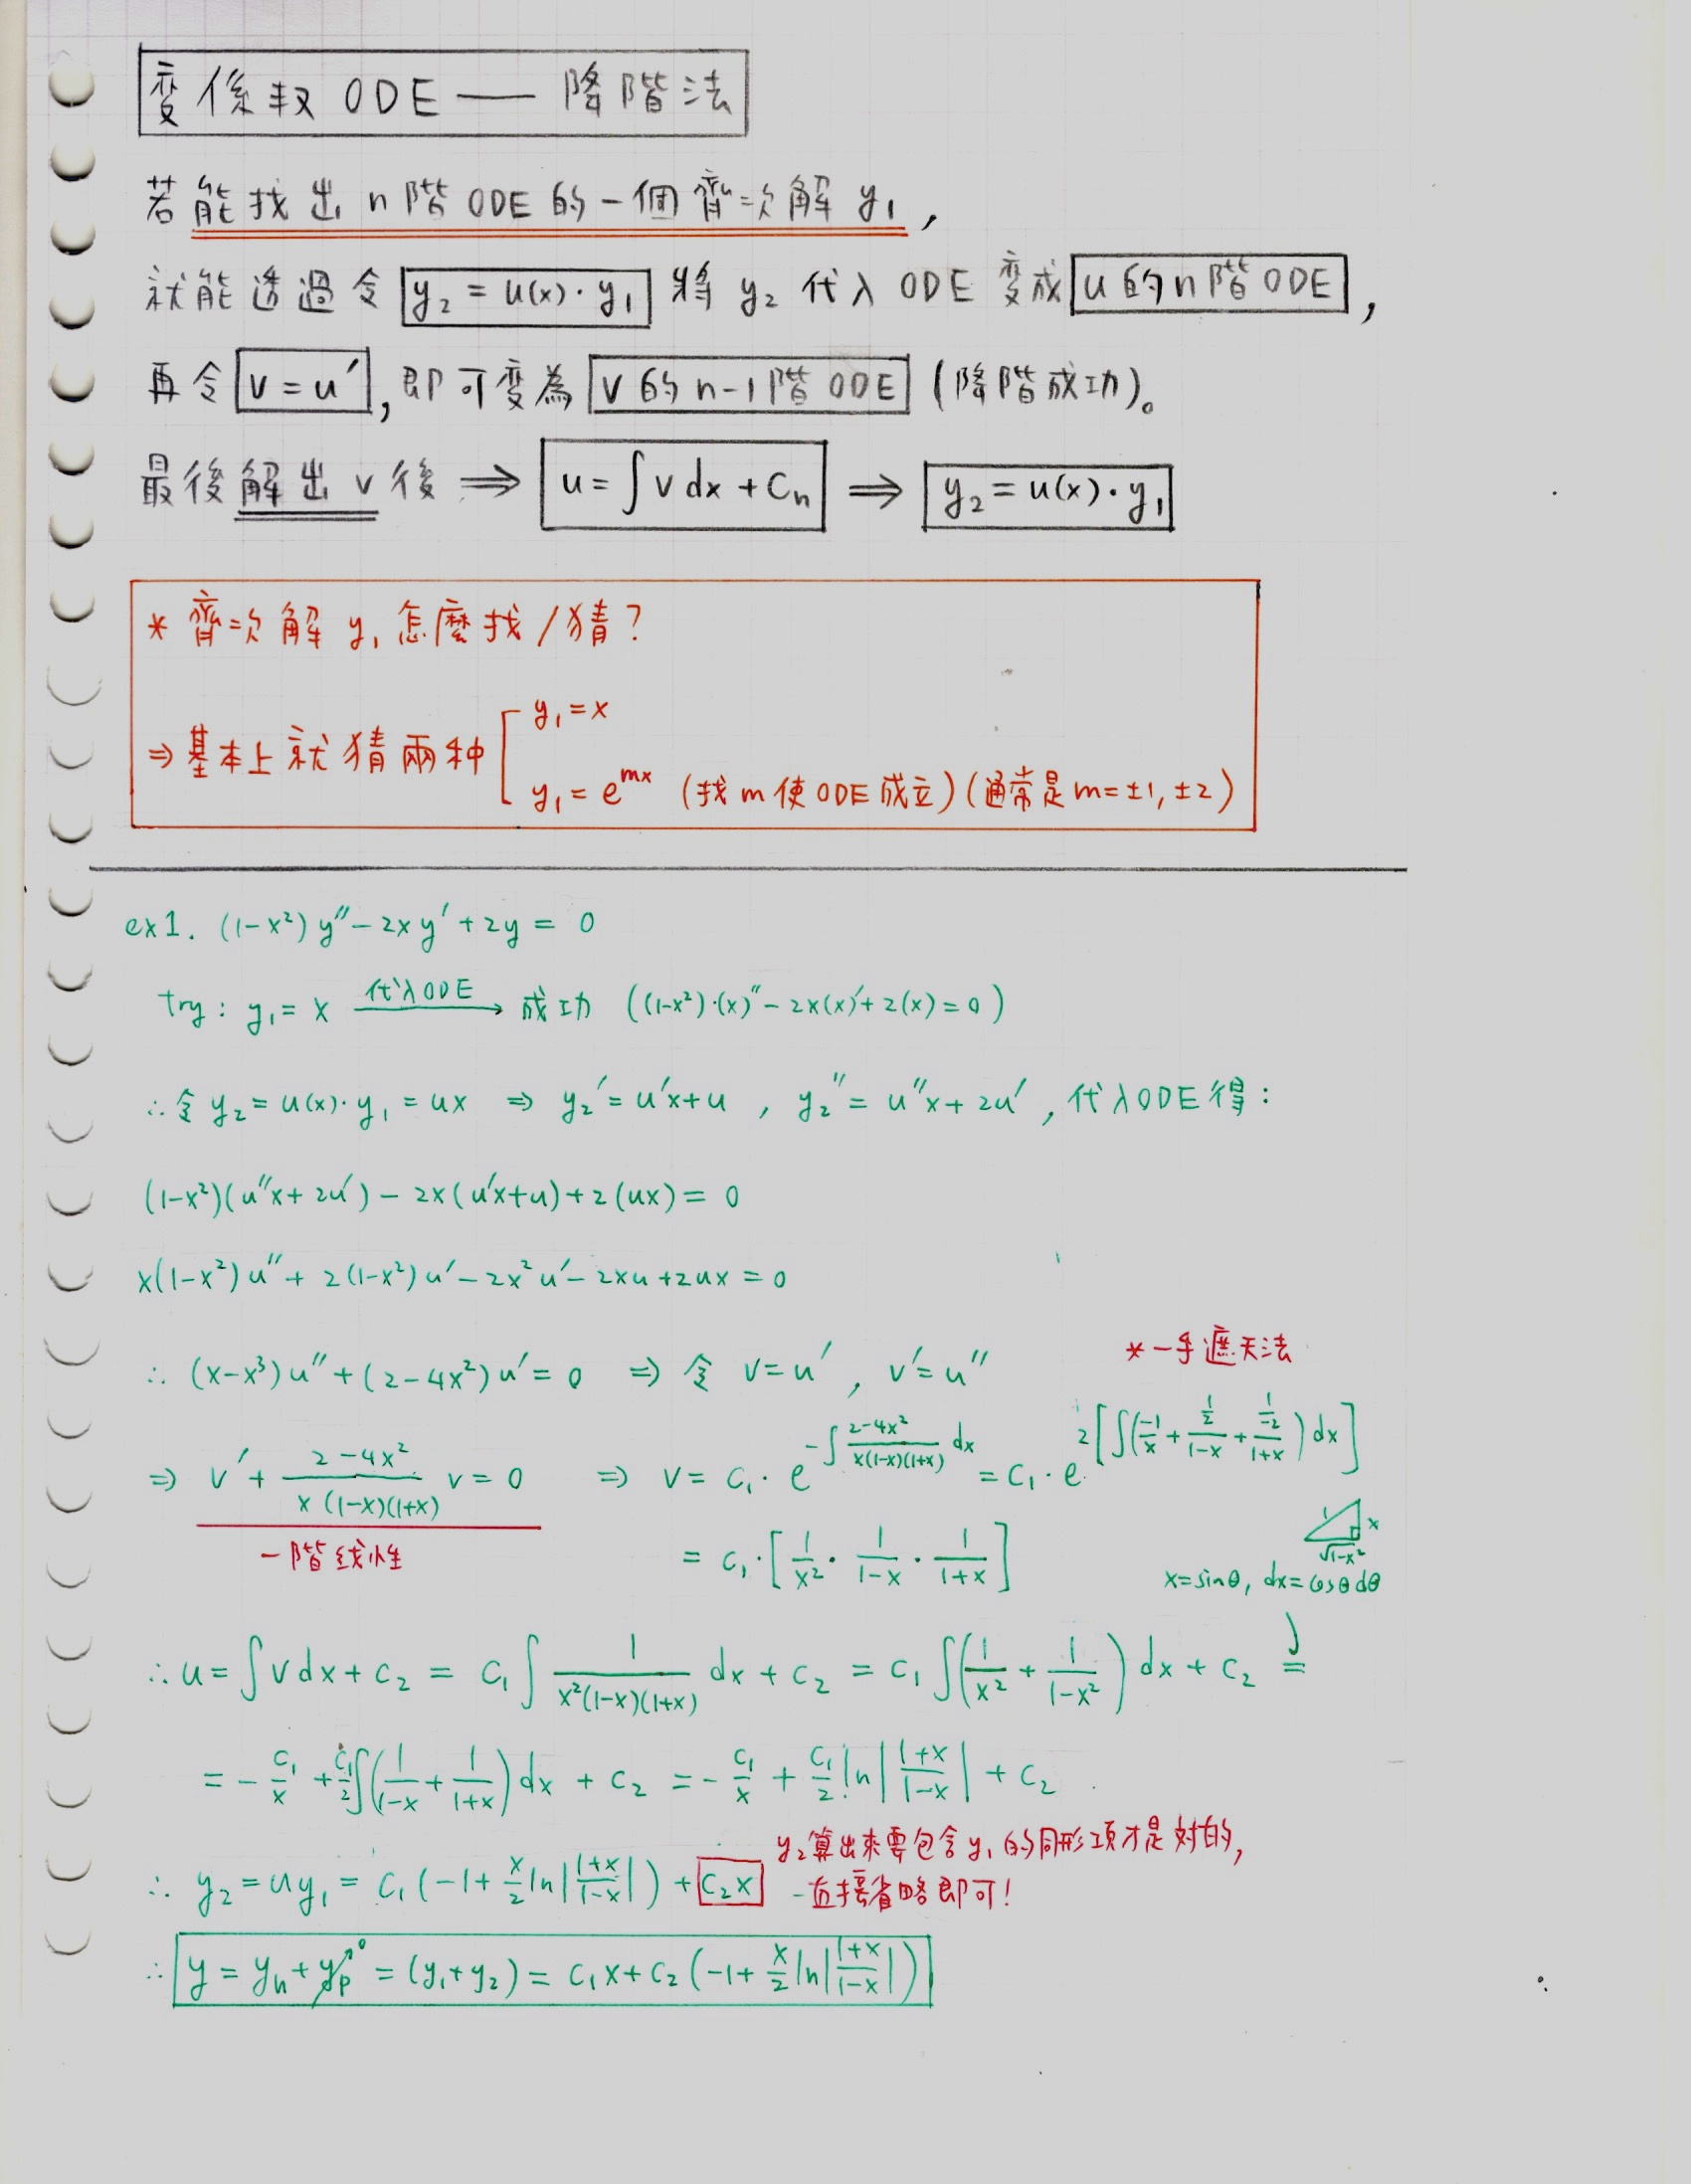 变係数 ODE — 降階法
若能找出 n階 ODE 的一個齊次解 y₁,
就能透過令 y₂ = u(x)·y₁ 將 y₂ 代入 ODE 变成 u 的 n階 ODE,
再令 v = u′, 即可变為 v 的 n-1階 ODE (降階成功)。
最後解出 v 後 ⇒ u = ∫ v dx + Cₙ ⇒ y₂ = u(x)·y₁
* 齊次解 y₁ 怎麼找/猜?
⇒ 基本上就猜兩种 [ y₁ = x
y₁ = e^{mx} (找 m 使 ODE 成立) (通常是 m = ±1, ±2)
ex1. (1-x²) y″ - 2x y′ + 2y = 0
try: y₁ = x 代入ODE → 成功 ((1-x²)·(x)″ - 2x(x)′ + 2(x) = 0)
∴ 令 y₂ = u(x)·y₁ = ux ⇒ y₂′ = u′x + u , y₂″ = u″x + 2u′ , 代入ODE得:
(1-x²)(u″x + 2u′) - 2x(u′x + u) + 2(ux) = 0
x(1-x²) u″ + 2(1-x²) u′ - 2x² u′ - 2xu + 2ux = 0
* 一手遮天法
∴ (x-x³) u″ + (2-4x²) u′ = 0 ⇒ 令 v = u′ , v′ = u″
⇒ v′ + \frac{2-4x²}{x(1-x)(1+x)} v = 0 ⇒ v = c₁ · e^{-∫\frac{2-4x²}{x(1-x)(1+x)} dx} = c₁ · e^{2[∫(\frac{-1}{x} + \frac{\frac{1}{2}}{1-x} + \frac{\frac{1}{-2}}{1+x}) dx]}
一階线性
= c₁·[\frac{1}{x²} · \frac{1}{1-x} · \frac{1}{1+x}]
1 x √1-x²
x = sinθ, dx = cosθ dθ
∴ u = ∫ v dx + c₂ = c₁ ∫ \frac{1}{x²(1-x)(1+x)} dx + c₂ = c₁ ∫(\frac{1}{x²} + \frac{1}{1-x²}) dx + c₂ =
= -\frac{c₁}{x} + \frac{c₁}{2}∫(\frac{1}{1-x} + \frac{1}{1+x}) dx + c₂ = -\frac{c₁}{x} + \frac{c₁}{2} ln|\frac{1+x}{1-x}| + c₂
y₂算出來要包含 y₁ 的同形項才是対的,
∴ y₂ = uy₁ = c₁(-1 + \frac{x}{2} ln|\frac{1+x}{1-x}|) + c₂x - 直接省略即可!
∴ y = yₕ + yₚ⁰ = (y₁+y₂) = c₁x + c₂(-1 + \frac{x}{2} ln|\frac{1+x}{1-x}|)